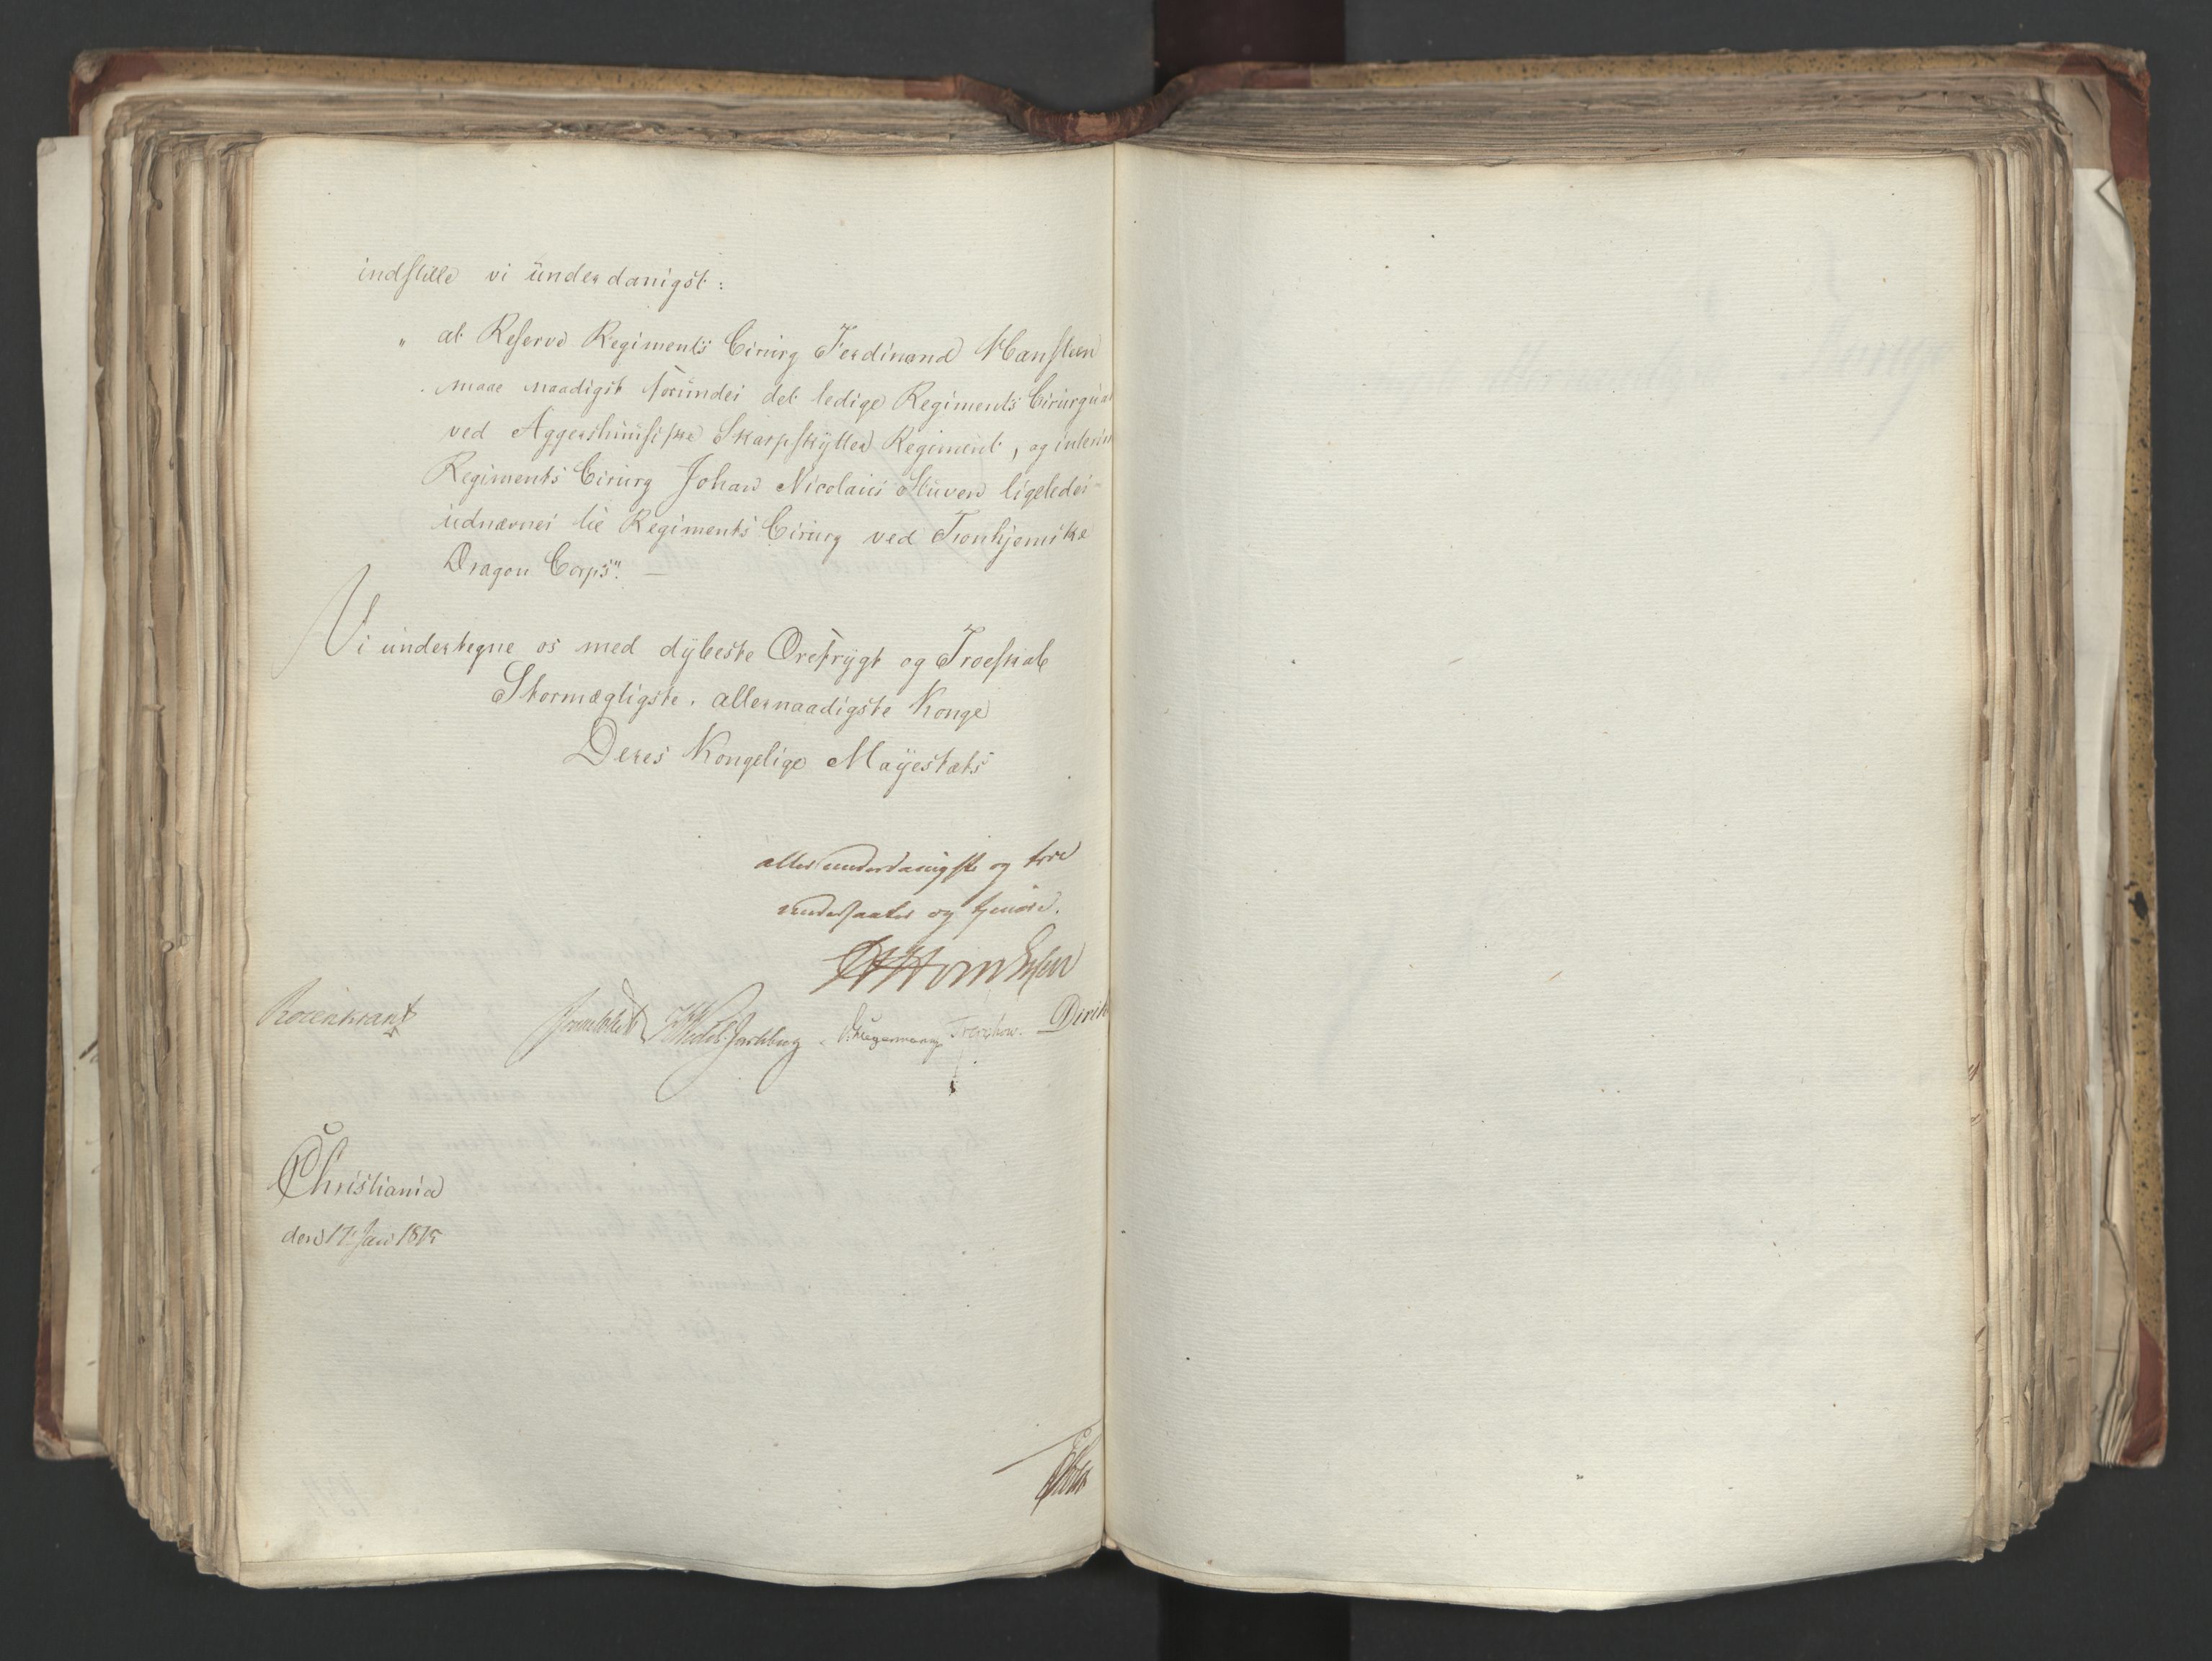 indstille vi ünderdanigst:
" at Reserve Regiments Cirürg Ferdinand Hansteen
maae naadigst foründes det ledige Regiments Cirürgiat
ved Aggershüüsiske Skarpskÿtter Regiment, og interims
Regiments Cirürg Johan Nicolaus Stüwen ligeledes
üdnævnes til Regiments Cirürg ved Tronhjemske
Dragon Corps". —
Vi ündertegne os med dÿbeste Ærefrÿgt og Troeskab
Stormægtigste, allernaadigste Konge
Deres Kongelige Maÿestæts
allerunderdanigste og troe
undersaatter og tjenere.
Rosenkrantz Sommerhielm Wedel-Jarlsberg Krieger Treschow Dirik
Christiania
den 17 Jan 1815